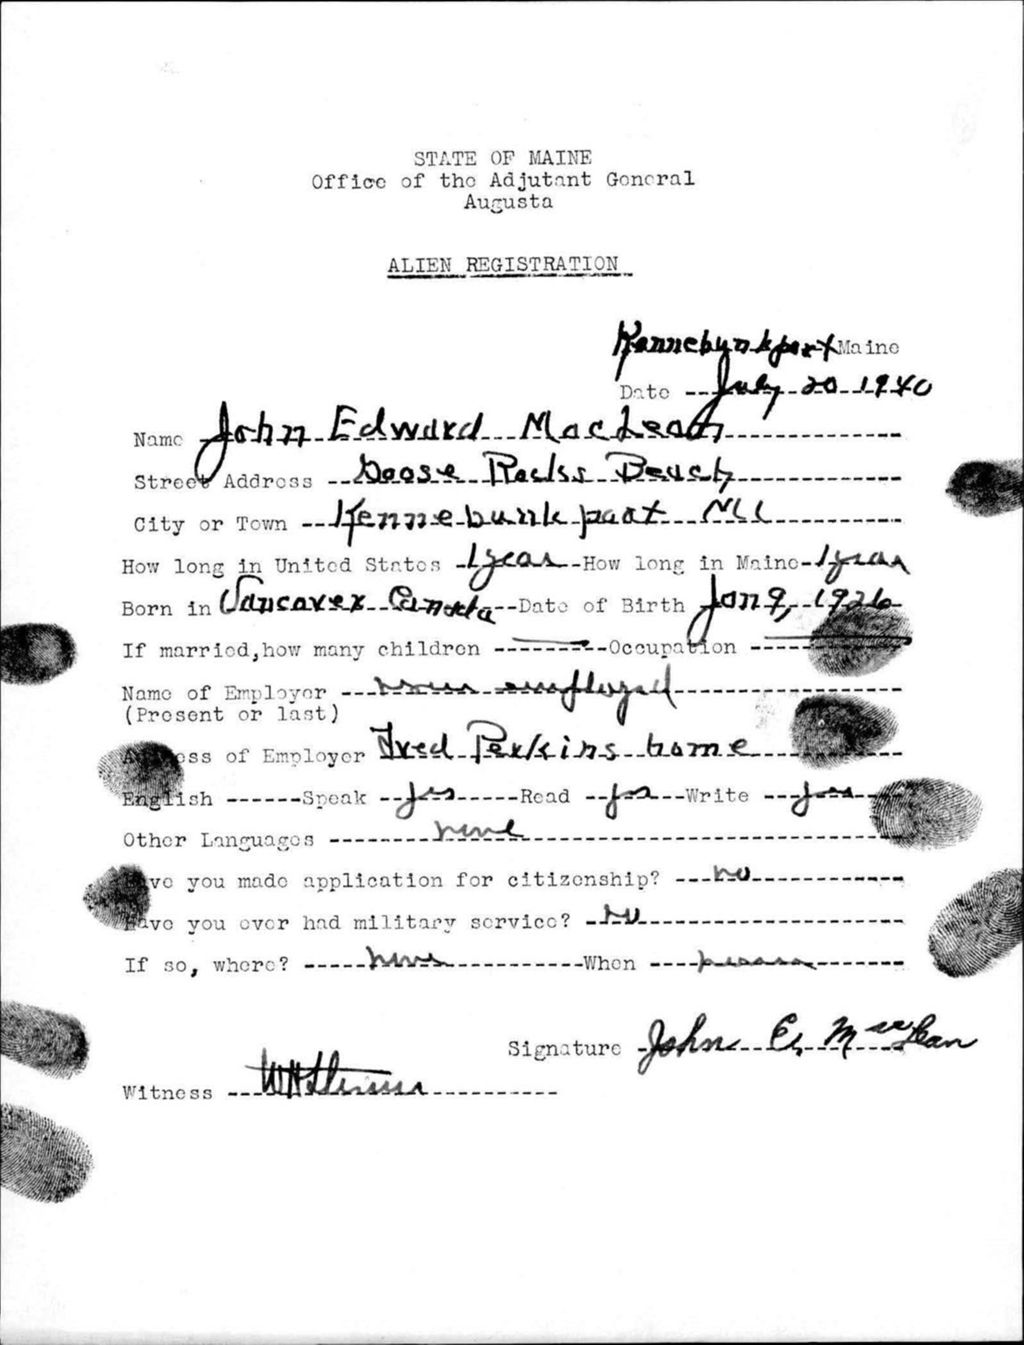 STATE OF MAINE
Office of the Adjutant General
Augusta
ALIEN REGISTRATION
Kennebunkport Maine
Date July 20 1940
Name John Edward MacLean
Street Address Goose Rocks Beach
City or Town Kennebunkport
How long in United States 1 year How long in Maine 1 year
Born in Canada Date of Birth Jan 9, 1926
If married, how many children Occupation
Name of Employer employed
(Present or last)
Address of Employer Fred Perkins home
English Speak yes Read yes Write yes
Other Languages none
Have you made application for citizenship? no
Have you ever had military service? no
If so, where? none When
Signature John E. MacLean
Witness